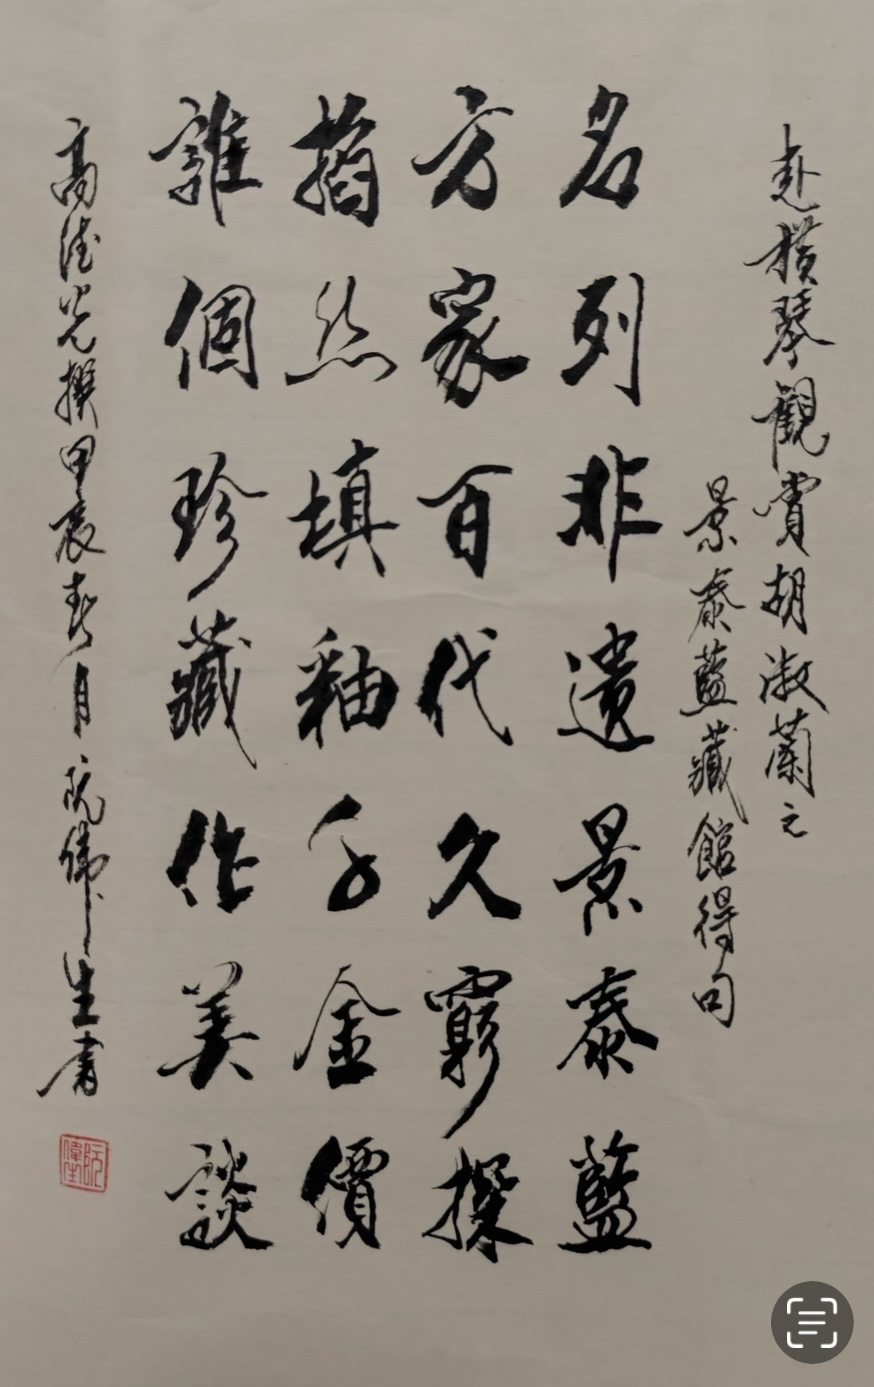 赴橫琴觀賞胡淑蘭之
景泰藍藏館得句
名列非遺景泰藍
方家百代久窮探
掐丝填釉千金價
誰個珍藏作美談
高德光撰甲辰春月阮偉生書
阮偉生